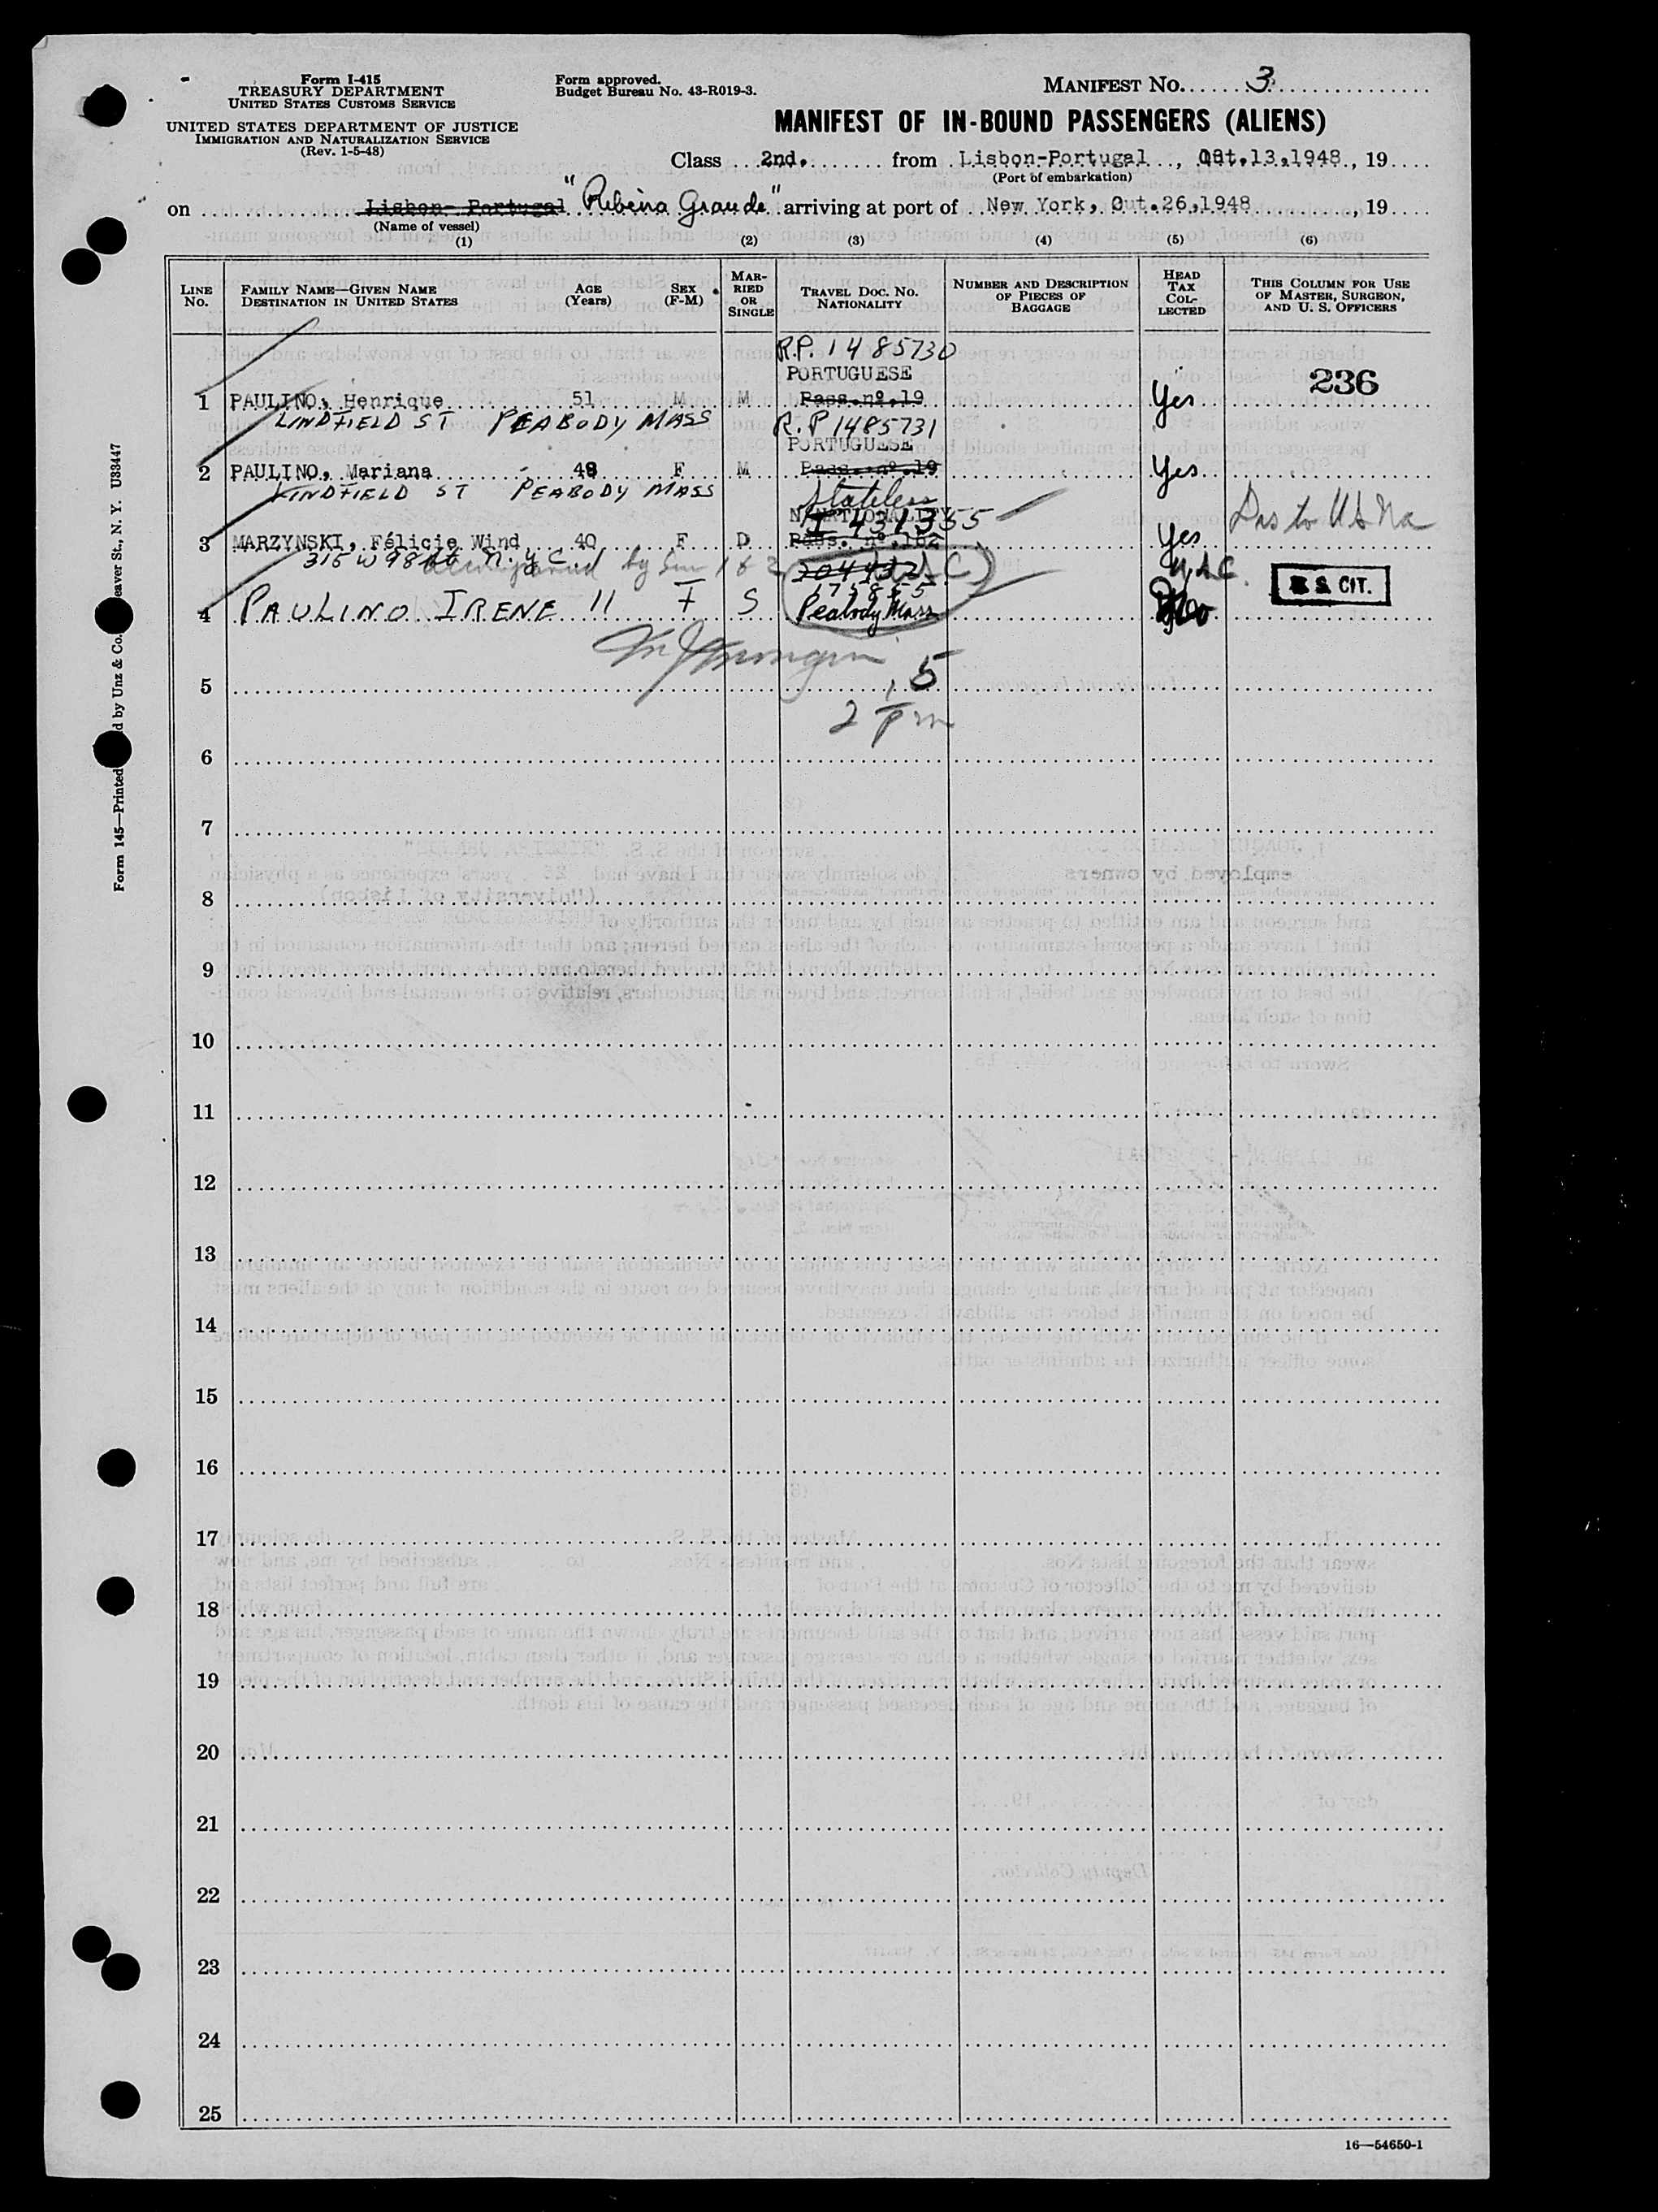 Form I-415
TREASURY DEPARTMENT
UNITED STATES CUSTOMS SERVICE
UNITED STATES DEPARTMENT OF JUSTICE
IMMIGRATION AND NATURALIZATION SERVICE
(Rev. 1-5-48)
Form approved.
Budget Bureau No. 43-R019-3.
MANIFEST No. 3
MANIFEST OF IN-BOUND PASSENGERS (ALIENS)
Class 2nd. from Lisbon-Portugal, Out.13,1948, 19
(Port of embarkation)
on Lisbon- Portugal "Ribeira Grande" arriving at port of New York, Out.26,1948, 19
(Name of vessel)
(1) (2) (3) (4) (5) (6)
LINE No. FAMILY NAME—GIVEN NAME DESTINATION IN UNITED STATES AGE (Years) SEX (F-M) MARRIED OR SINGLE TRAVEL DOC. No. NATIONALITY NUMBER AND DESCRIPTION OF PIECES OF BAGGAGE HEAD TAX COLLECTED THIS COLUMN FOR USE OF MASTER, SURGEON, AND U. S. OFFICERS
R.P. 1485730
PORTUGUESE
236
1 PAULINO, Henrique 51 M M Pass.nº.19 Yes
LINDFIELD ST PEABODY MASS R.P 1485731
PORTUGUESE
2 PAULINO, Mariana 48 F M Pass.nº.19 Yes
LINDFIELD ST PEABODY MASS
Stateless
I 431355
3 MARZYNSKI, Félicie Wind 40 F D Pass. nº.162 Yes
316 W 98 N.Y.C.
by 162
U.S.C.
175855
U.S. CIT.
4 PAULINO IRENE 11 F S Peabody Mass
5
5
2 pm
6
7
8
9
10
11
12
13
14
15
16
17
18
19
20
21
22
23
24
25
16—54650-1
Form 145—Printed d by Unz & Co. eaver St., N. Y. U33447